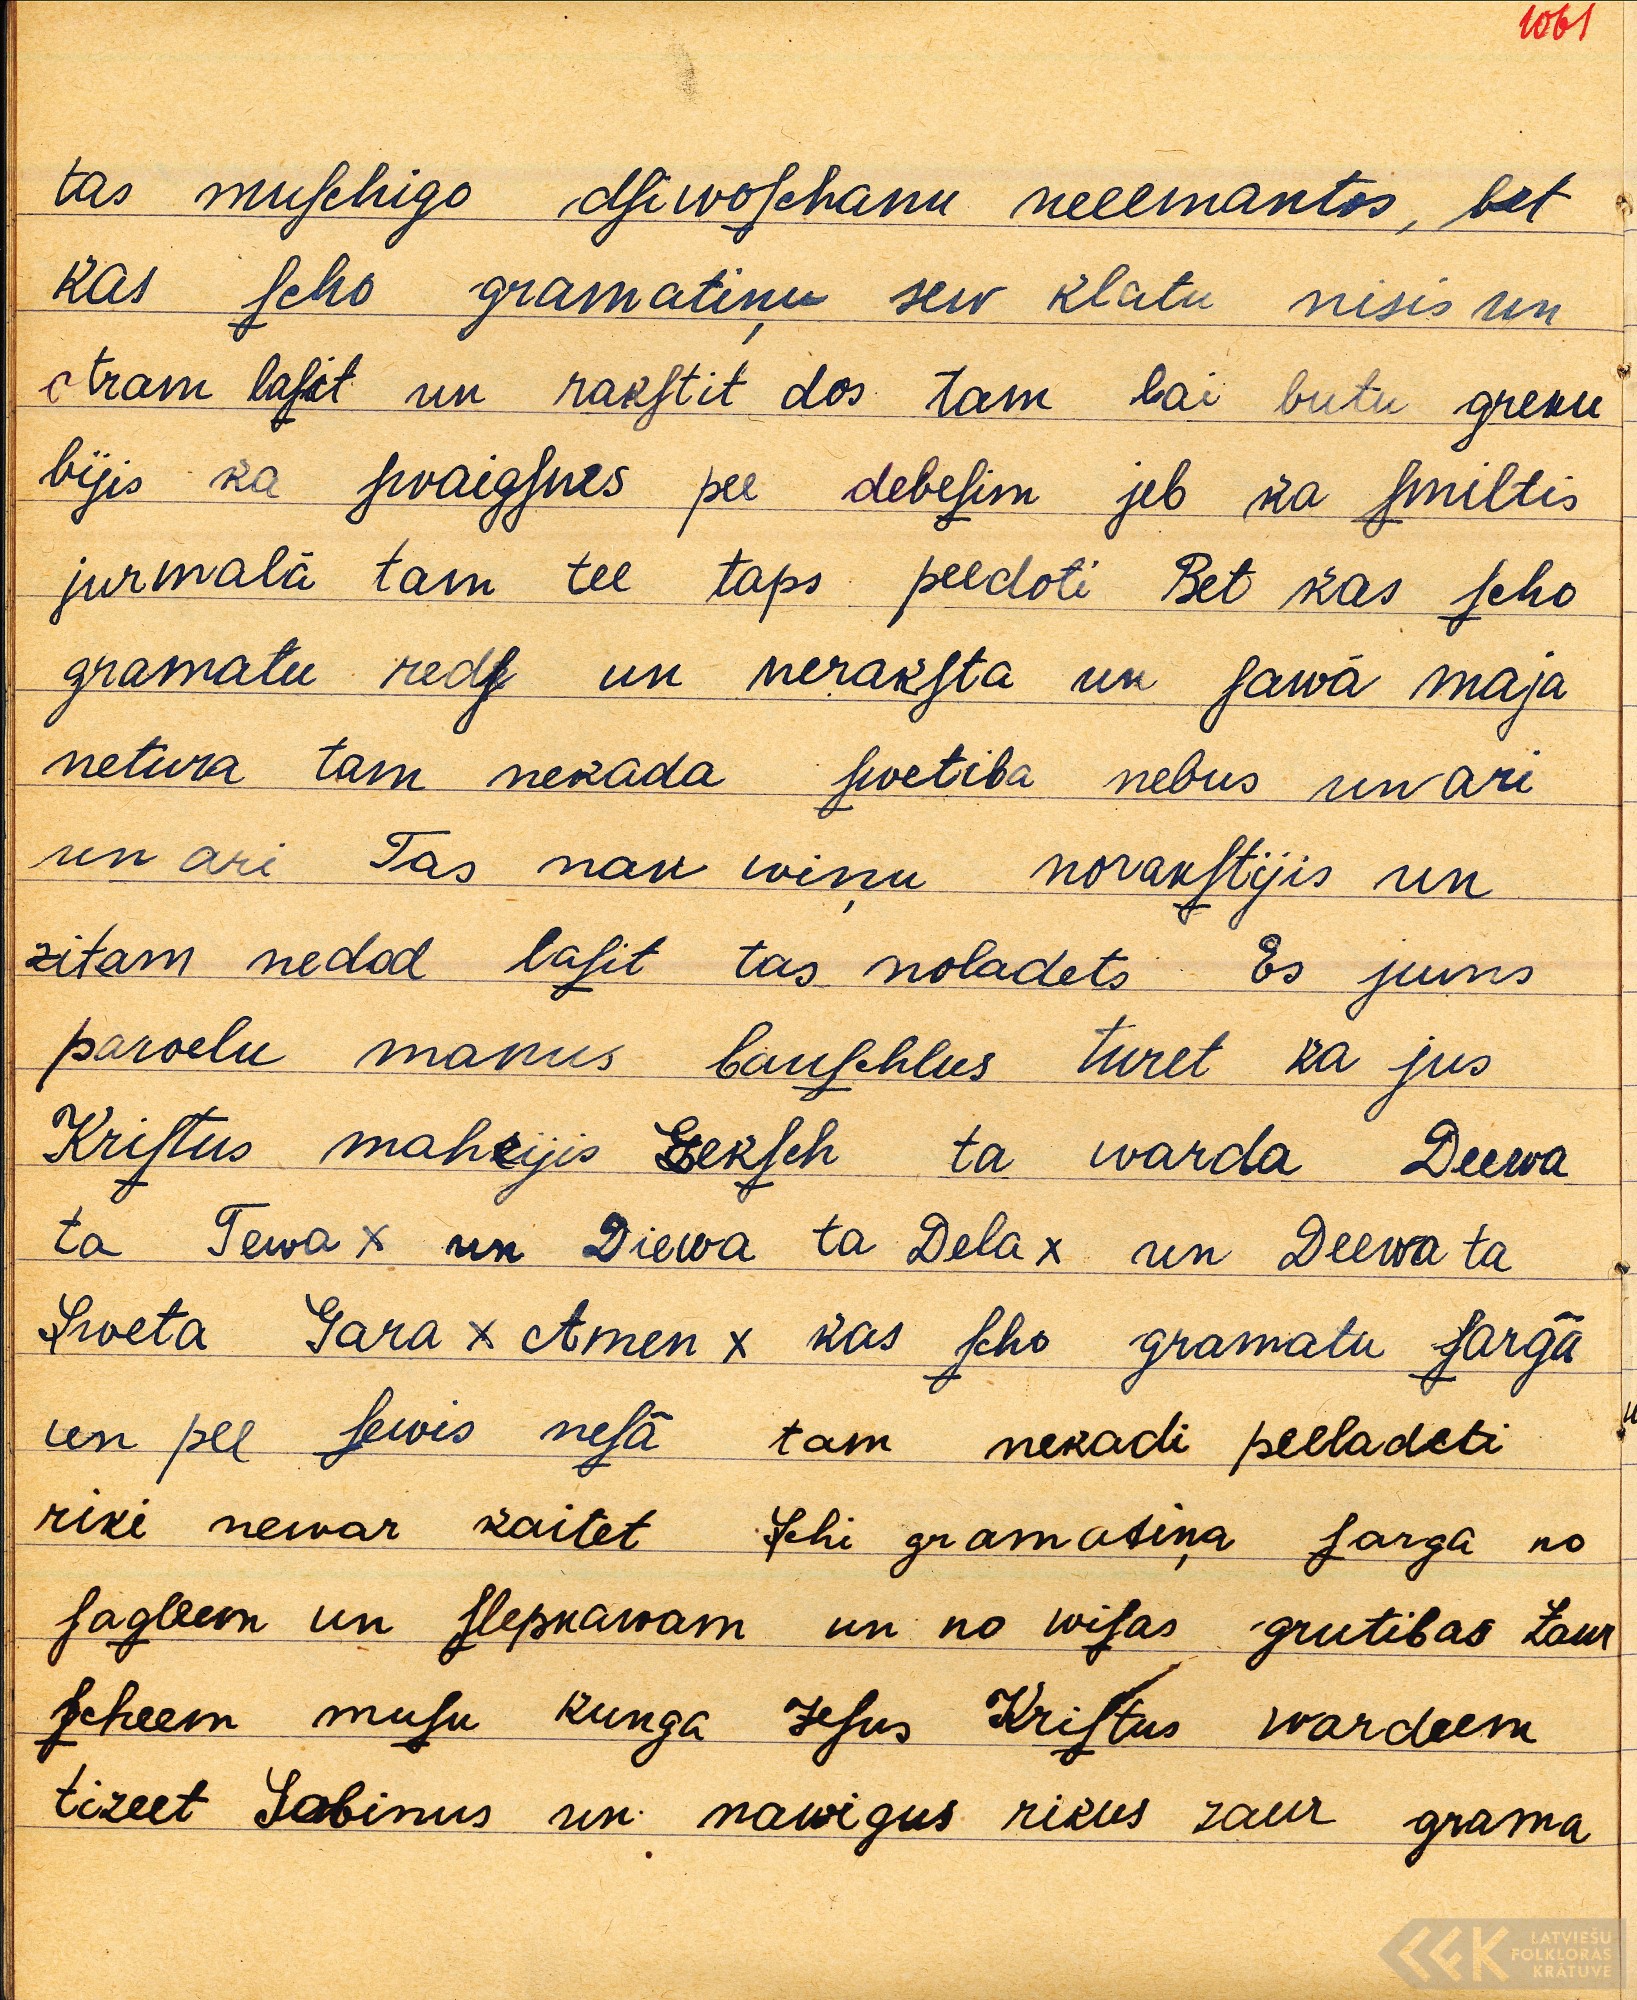 1061
tas muſchigo dſiwoſchanu neeemantos, bet
kas ſcho gramatiņu sew klatu nisis un
otram laſit un rakſtit dos tam lai butu greku
bijis ka ſwaigſnes pee debeſim jeb ka ſmiltis
jurmalā tam tee taps peedoti Bet kas ſcho
gramatu redſ un nerakſta un ſawā māja
netura tam nekada ſwetiba nebus un ari
un ari Tas nak wiņu norakſtijis un
zitam nedod laſit tas noladets Es jums
pawelu manus bauſchlus turet ka jus
Kriſtus mahzijis Eekſch ta warda Deewa
ta Tewa x un Diewa ta Dela x un Deewa ta
Sweta Gara x Amen x kas ſcho gramatu ſargā
un pee ſewis neſā tam nekadi peeladeti
riki newar kaitet Schi gramatiņa ſarga no
ſagleem un ſlepkawam un no wiſas grutibas Zaur
ſcheem muſu kunga Jeſus Kriſtus wardeem
tizeet Sabinus un nawigus rikus zaur grama
LATVIEŠU
FOLKLORAS
KRĀTUVE